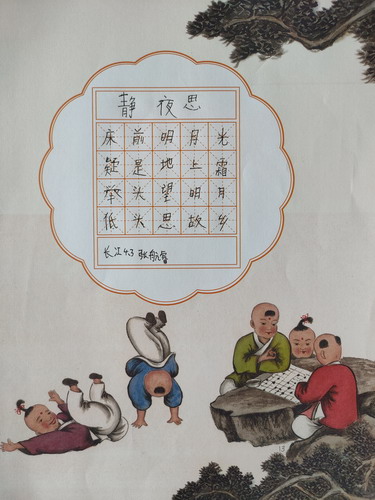 静夜思
床前明月光
疑是地上霜
举头望明月
低头思故乡
长江4.3 张航